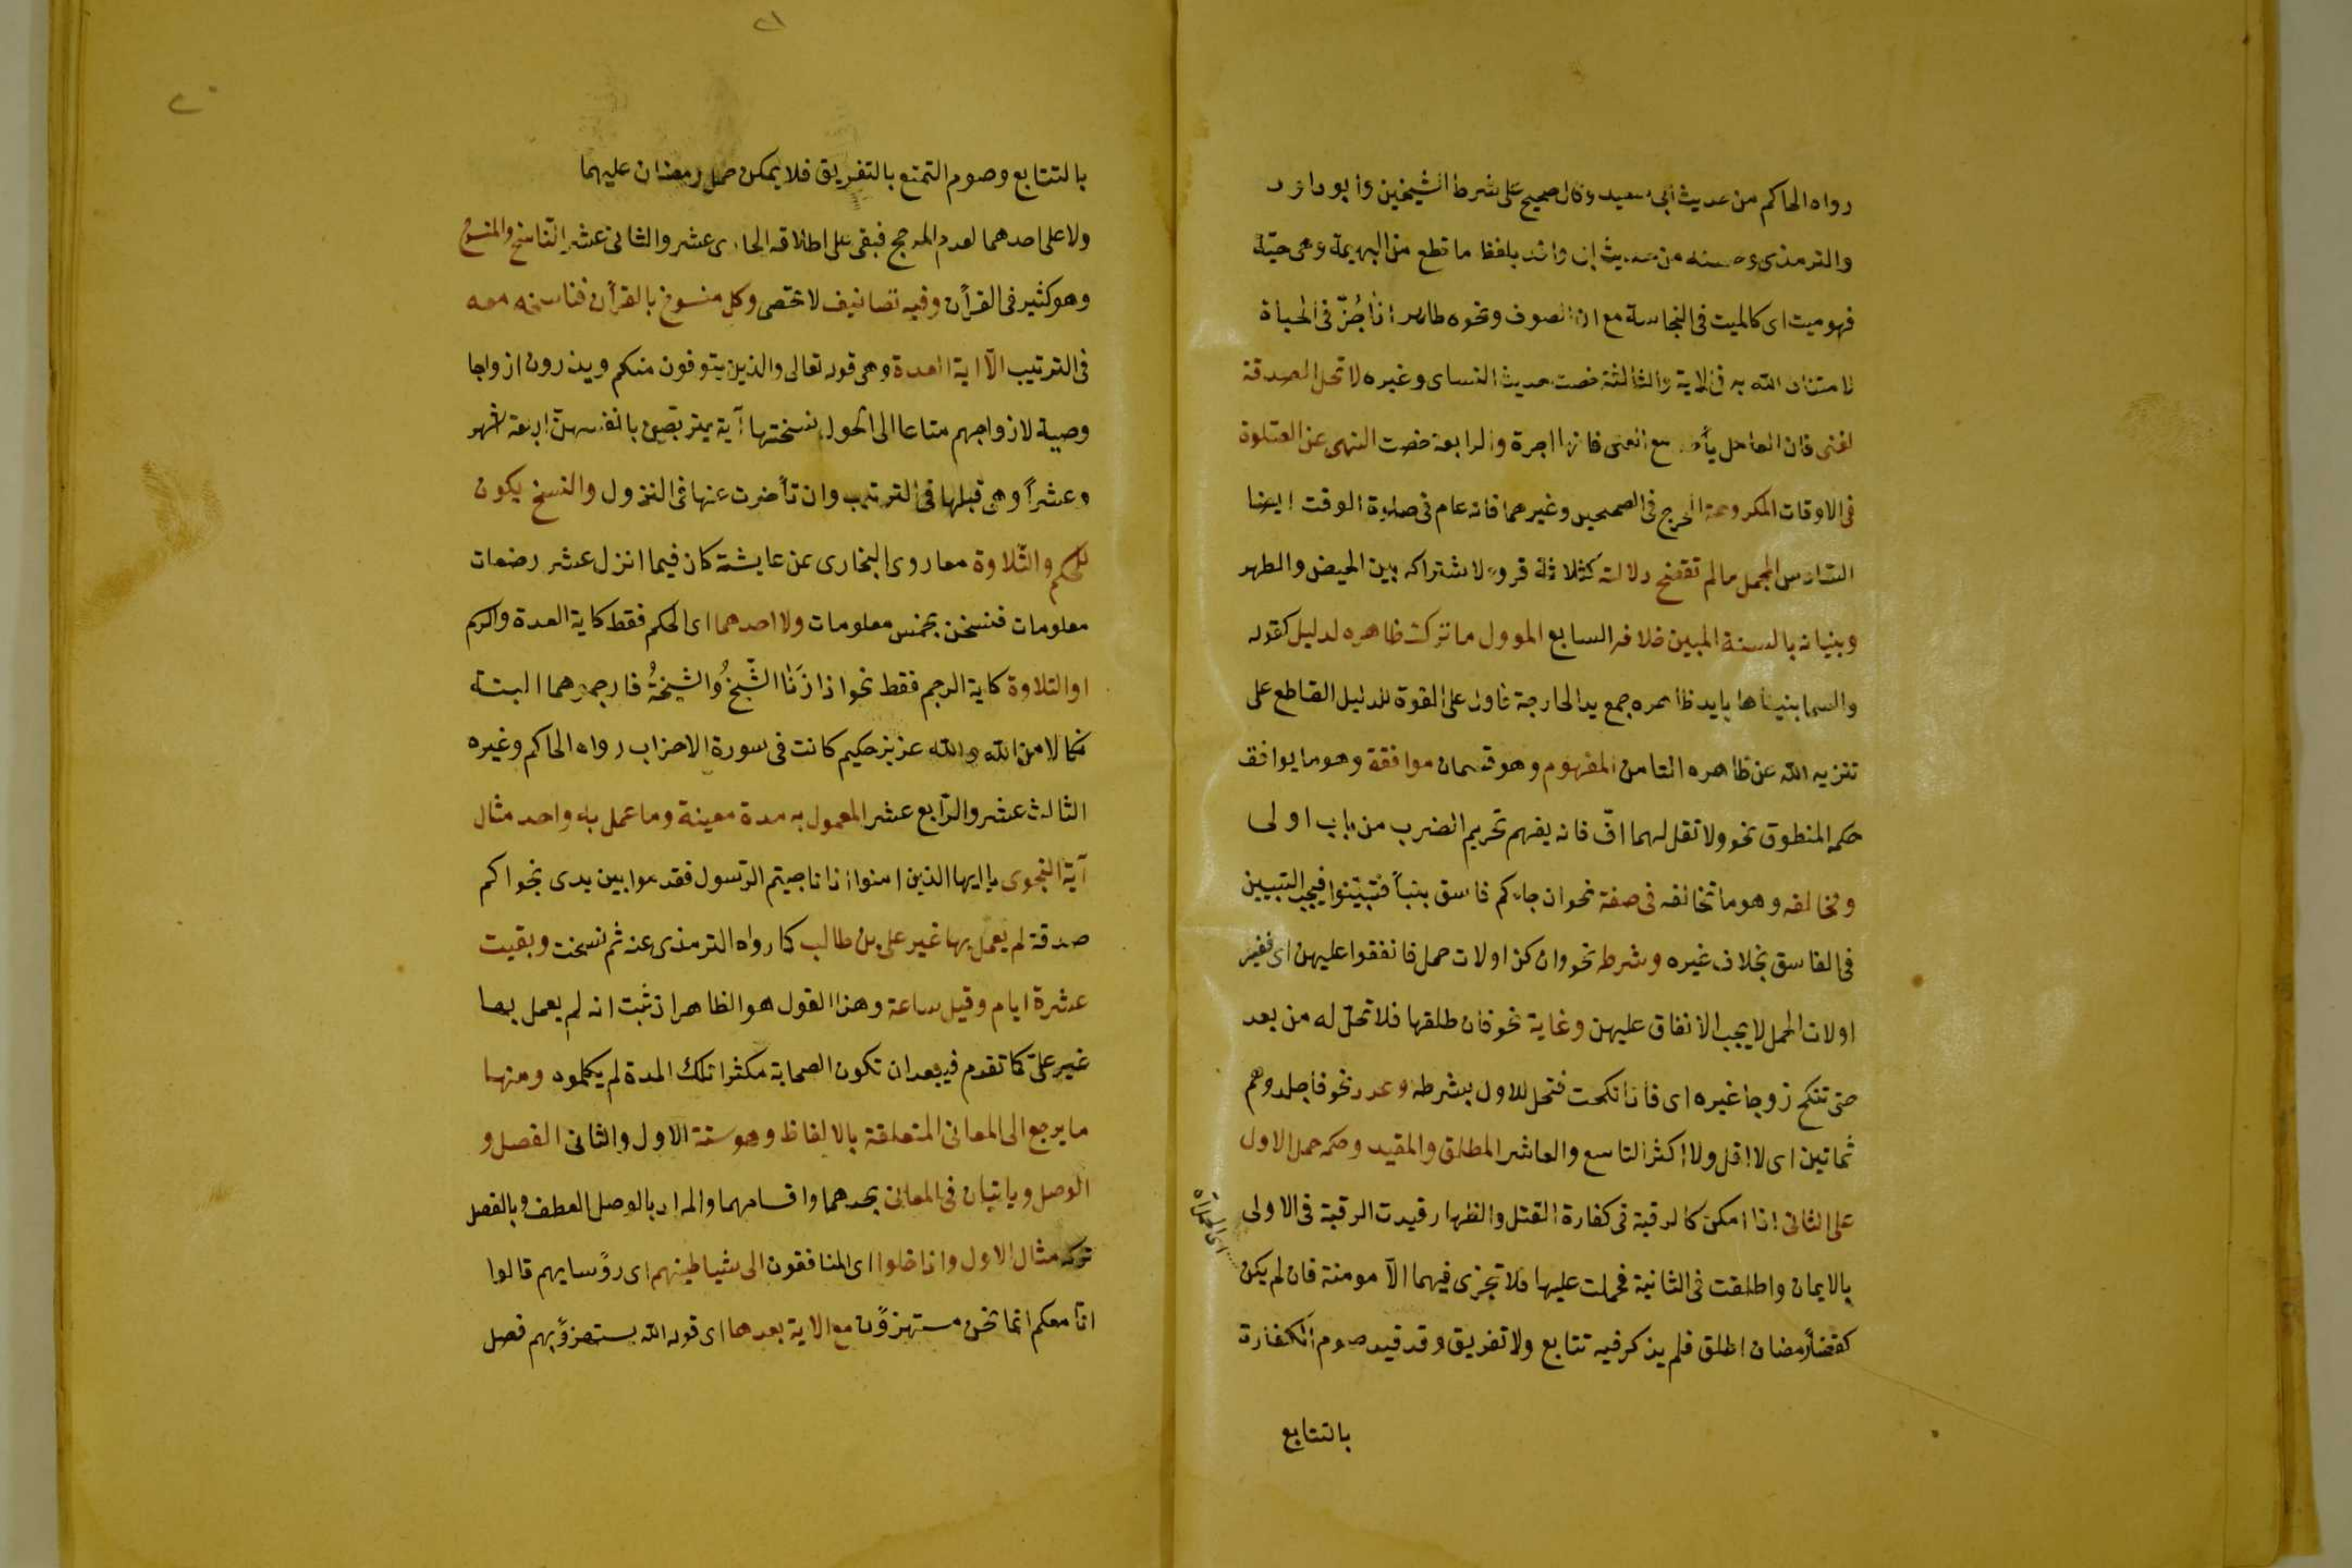 رواه الحاكم من حديث ابى سعيد وقال صحيح على شرط الشيخين وابو داود
والترمذى وحسنه من حديث ابى واقد بلفظ ما قطع من البهيمة وهى حيّة
فهو ميت اى كالميت فى النجاسة مع ان الصوف ونحوه طاهر اذا جُزّ فى الحياة
لامتنان الله به فى الاية والثالثة خصت حديث النساى وغيره لا تحل الصدقة
لغنى فان العامل يأخذ مع الغنى فانها اجرة والرابعة خصت النهى عن الصلوة
فى الاوقات المكروهة المخرج فى الصحيحين وغيرهما فانه عام فى صلوة الوقت ايضا
السادس المجمل ما لم تتضح دلالته كثلاثة قروء لاشتراكه بين الحيض والطهر
وبيانه بالسنة المبين خلافه السابع الموول ما ترك ظاهره لدليل كقوله
والسما بنيناها بايد ظاهره جمع يد الجارحة فاول على القوة للدليل القاطع على
تنزيه الله عن ظاهره الثامن المفهوم وهو قسمان موافقة وهو ما يوافق
حكم المنطوق نحو ولا تقل لهما افّ فانه يفهم تحريم الضرب من باب اولى
ومخالفه وهو ما تخالفه فى صفة نحو ان جاءكم فاسق بنبأ فتبيّنوا فيجب التبيين
فى الفاسق بخلاف غيره وشرط نحو وان كن اولات حمل فانفقوا عليهن اى فغير
اولات الحمل لا يجب الانفاق عليهن وغاية نحو فان طلقها فلا تحلّ له من بعد
حتى تنكح زوجا غيره اى فاذا نكحت فتحل للاول بشرطه وعدد نحو فاجلدوهم
ثمانين اى لا اقل ولا اكثر التاسع والعاشر المطلق والمقيد وحكمه حمل الاول
على الثانى اذا امكن كالرقبة فى كفارة القتل والظهار قيدت الرقبة فى الاولى
بالايمان واطلقت فى الثانية فحملت عليها فلا تجزى فيهما الاّ مومنة فان لم يكن
كقضأ رمضان اطلق فلم يذكر فيه تتابع ولا تفريق وقد قيد صوم الكفارة
بالتتابع
٢٠
٢١
بالتتابع وصوم التمتع بالتفريق فلا يمكن حمل رمضان عليهما
ولا على احدهما لعدم المرجح فبقى على اطلاقه الحادى عشر والثانى عشر الناسخ والمنسوخ
وهو كثير فى القرأن وفيه تصانيف لا تحصى وكل منسوخ بالقرأن فناسخه معه
فى الترتيب الاّ اية العدة وهى قوله تعالى والذين يتوفون منكم ويذرون ازواجا
وصية لازواجهم متاعا الى الحول نسختها آية يتربّصن بانفسهنّ اربعة اشهر
وعشراً وهى قبلها فى الترتيب وان تأخرت عنها فى النزول والنسخ يكون
للحكم والتّلاوة معا روى البخارى عن عايشة كان فيما انزل عشر رضعات
معلومات فنسخن بخمس معلومات ولا احدهما اى الحكم فقط كاية العدة والرجم
او التلاوة كاية الرجم فقط نحو اذا زَنَا الشّيخُ والشيخةُ فارجموهما البتة
نكالا من الله والله عزيز حكيم كانت فى سورة الاحزاب رواه الحاكم وغيره
الثالث عشر والرّابع عشر المعمول به مدة معينة وما عمل به واحد مثال
آية النجوى يا ايها الذين امنوا اذا ناجيتم الرّسول فقدموا بين يدى نجواكم
صدقة لم يعمل بها غير على بن طالب كما رواه الترمذى عنه ثم نسخت وبقيت
عشرة ايام وقيل ساعة وهذا القول هو الظاهر اذ ثبت انه لم يعمل بها
غير علىّ كما تقدم فيبعد ان تكون الصحابة مكثوا تلك المدة لم يكلموه ومنها
ما يرجع الى المعانى المتعلقة بالالفاظ وهو ستة الاول والثانى الفصل و
الوصل وياتيان فى المعانى بحدهما واقسامهما والمراد بالوصل العطف وبالفصل
تركه مثال الاول واذا خلوا اى المنافقون الى شياطينهم اى روًسايهم قالوا
انّا معكم انما نحن مستهزوًن مع الاية بعدها اى قوله الله يستهزوً بهم فصل